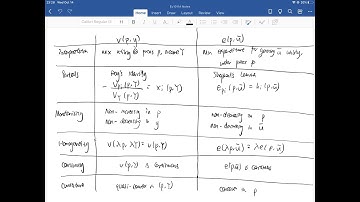 22:26 Wed Oct 14
v(p,y)
e(p,ū)
Interpretation
max utility under prices p, income Y
Min expenditure for given utility,
under price p
Duals
Roy's identity
Shephard's Lemma
- V_pi(p,Y) / V_Y(p,Y) = x_i(p,Y)
e_pi(p,ū) = h_i(p,ū)
Monotonicity
Non-increasing in p
Non-decreasing in p
Non-decreasing in y
Non-decreasing in ū
Homogeneity
v(λp, λY) = v(p,Y)
e(λp,ū) = λe(p,ū)
Continuity
v(p,Y) is continuous
e(p,ū) is continuous
Curvature
quasi-convex in (p,Y)
concave in p